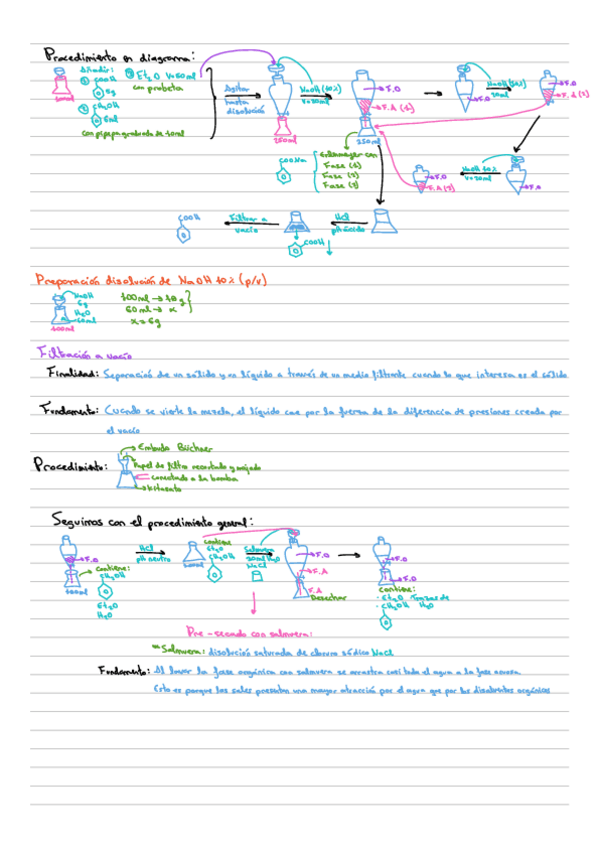 Procedimiento en diagrama:
Añadir:
① COOH
5g
② CH₂OH
5ml
③ Et₂O V=50ml
con probeta
con pipeta graduada de 10ml
100ml
Agitar
hasta
disolución
250ml
NaOH (10%)
V=20ml
F.O
F.A (1)
250ml
NaOH (10%)
20ml
F.O
F.O
F.A (2)
NaOH 10%
V=20ml
F.O
F.A
F.O
F.A (3)
COONa
Erlenmeyer con
Fase (1)
Fase (2)
Fase (3)
HCl
pH ácido
COOH ↓
Filtrar a
vacío
COOH
Preparación disolución de NaOH 10% (p/v)
NaOH
6g
H₂O
60ml
100ml
100ml → 10g
60ml → x
x = 6g
Filtración a vacío
Finalidad: Separación de un sólido y un líquido a través de un medio filtrante cuando lo que interesa es el sólido
Fundamento: Cuando se vierte la mezcla, el líquido cae por la fuerza de la diferencia de presiones creada por
el vacío
Procedimiento:
Embudo Büchner
Papel de filtro recortado y mojado
conectado a la bomba
kitasato
Seguimos con el procedimiento general:
F.O
contiene:
CH₂OH
Et₂O
H₂O
100ml
HCl
pH neutro
contiene
Et₂O
CH₂OH
Salmuera
20ml H₂O
NaCl
F.O
F.A
F.A
Desechar
F.O
F.O
contiene:
· Et₂O Trazas de
· CH₂OH H₂O
Pre-secado con salmuera:
** Salmuera: disolución saturada de cloruro sódico NaCl
Fundamento: Al lavar la fase orgánica con salmuera se arrastra casi toda el agua a la fase acuosa.
Esto es porque las sales presentan una mayor atracción por el agua que por los disolventes orgánicos